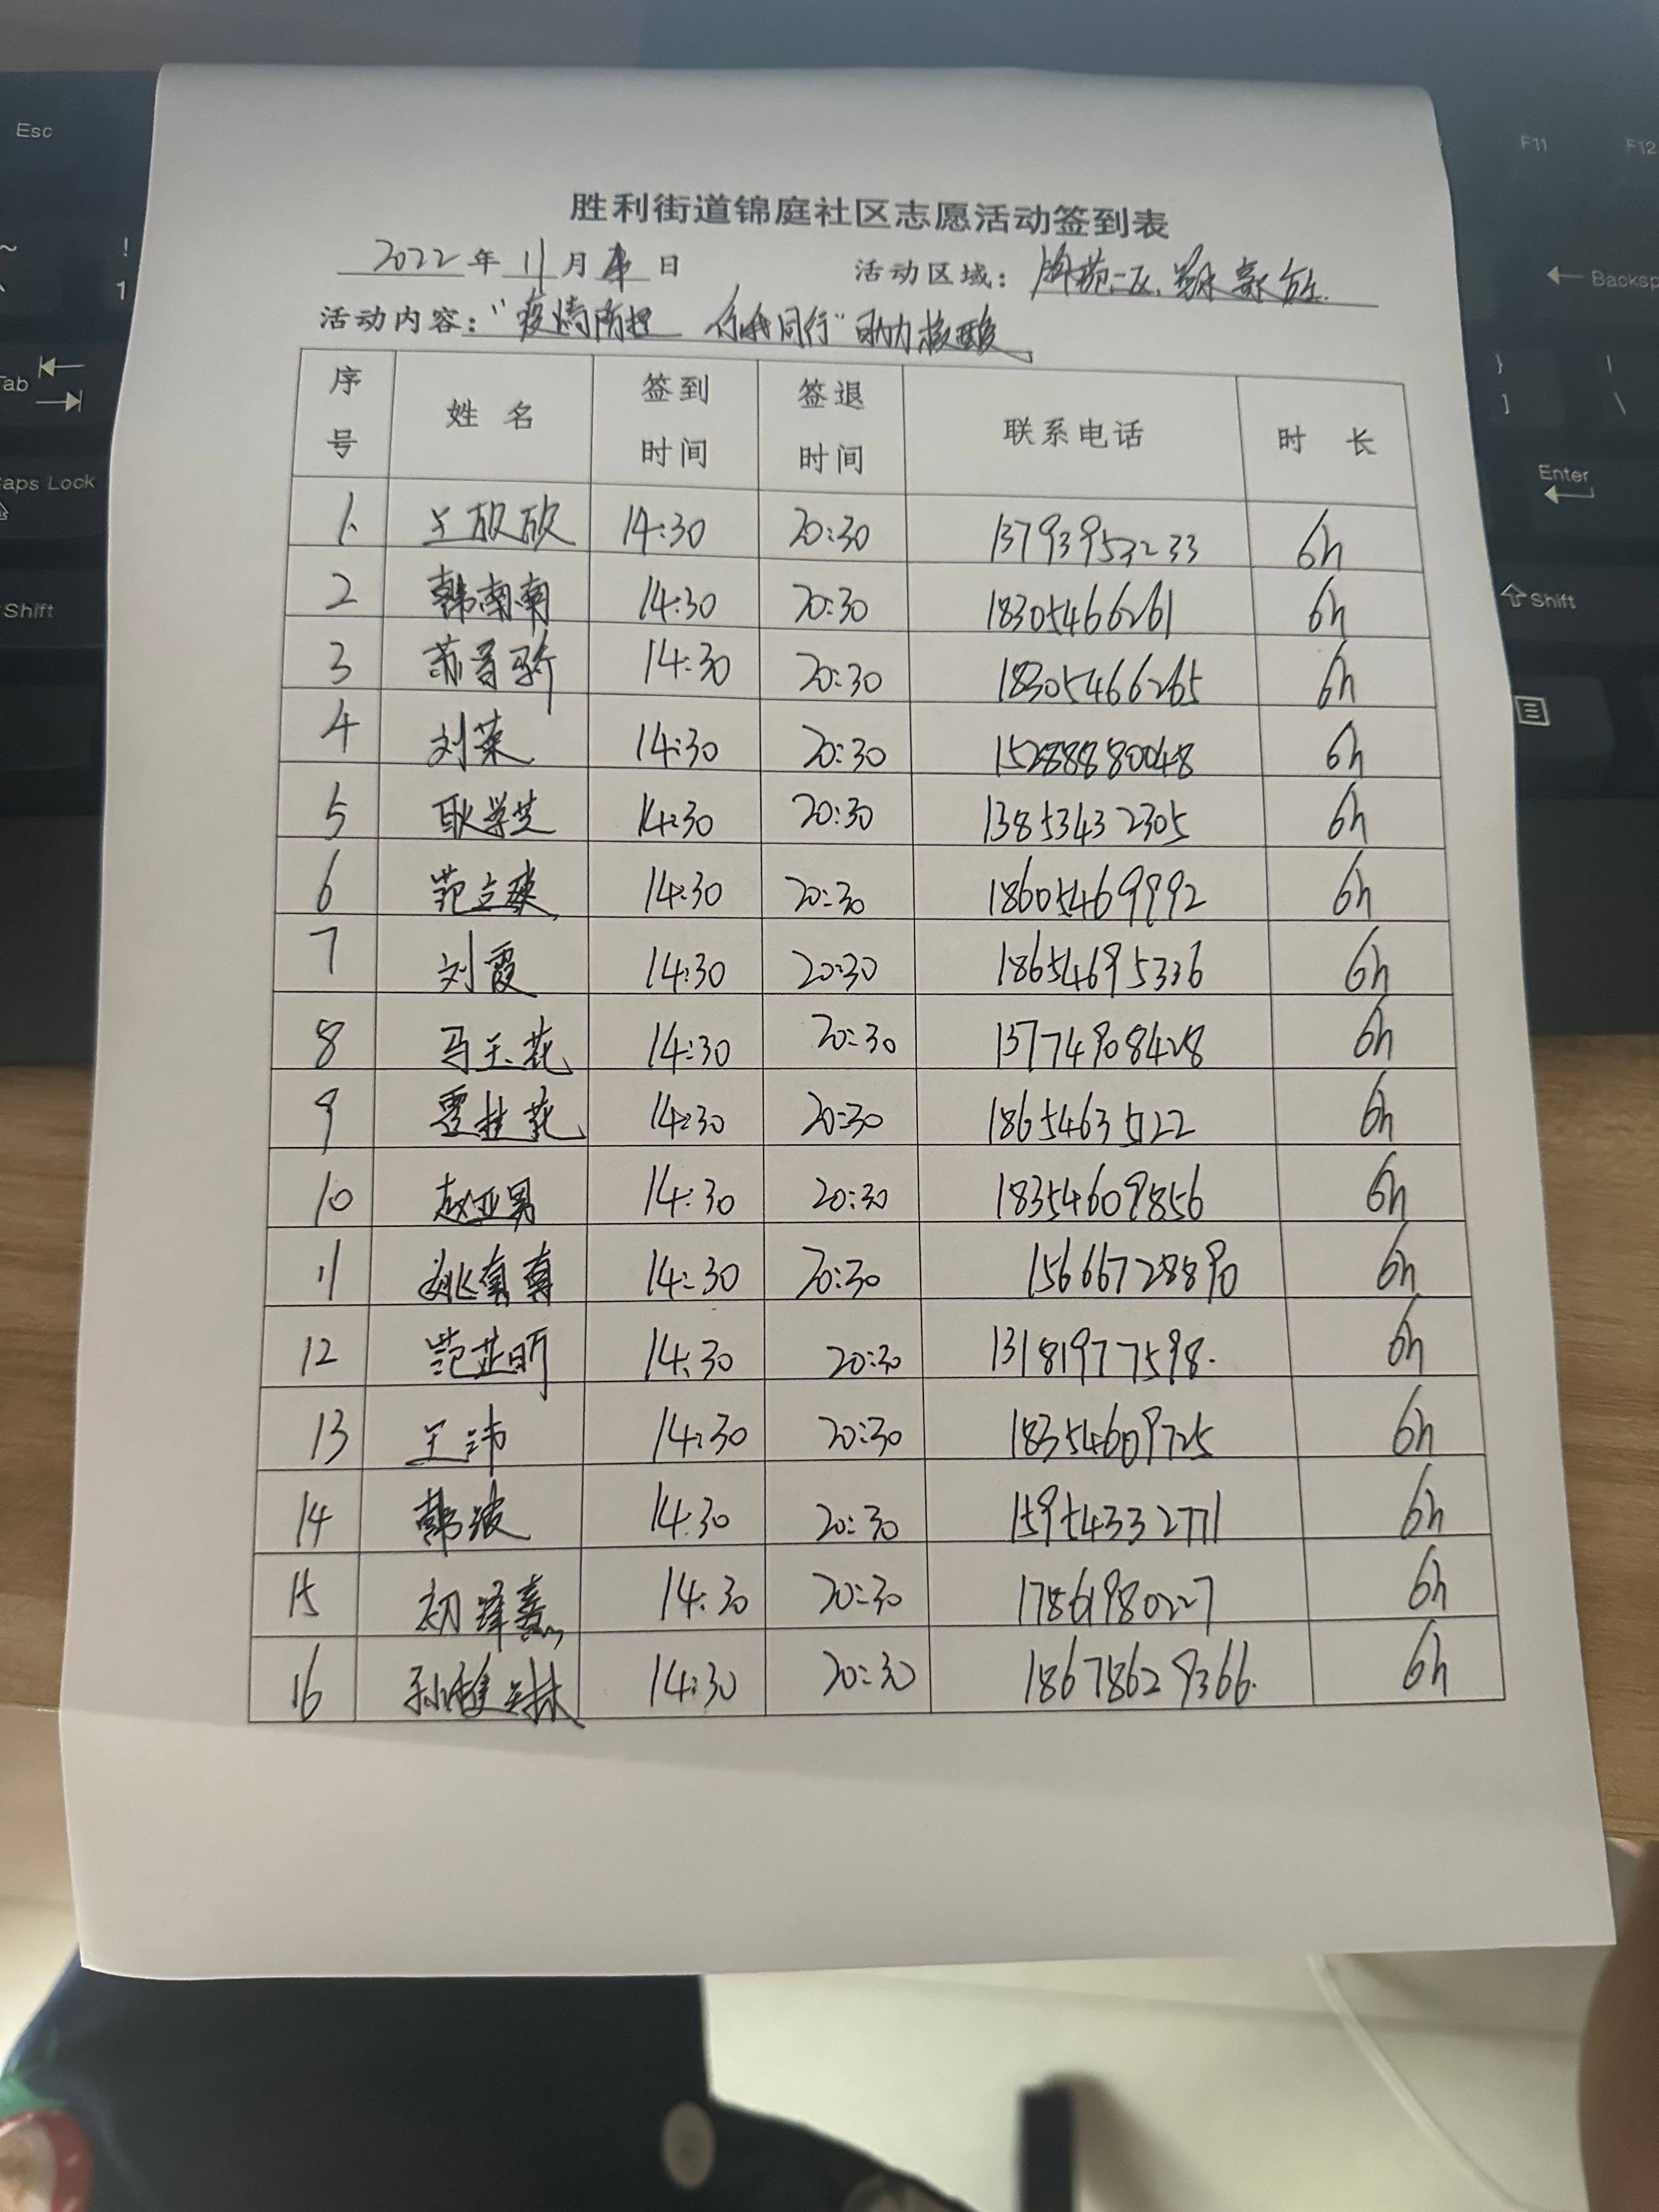 Esc
F11
F12
~
!
1
Backsp
Tab
}
]
|
\
Caps Lock
Enter
Shift
Shift
胜利街道锦庭社区志愿活动签到表
2022年11月 日 活动区域：
活动内容："疫情防控 你我同行"助力核酸
序号 姓名 签到时间 签退时间 联系电话 时长
1. 王欣欣 14:30 20:30 13793953233 6h
2 韩南南 14:30 20:30 18305466261 6h
3 苏 14:30 20:30 18305466265 6h
4 刘荣 14:30 20:30 15288880048 6h
5 耿学芝 14:30 20:30 13853432305 6h
6 范立 14:30 20:30 18605469992 6h
7 刘霞 14:30 20:30 18654695336 6h
8 马玉花 14:30 20:30 13774908428 6h
9 霍桂花 14:30 20:30 18654635122 6h
10 赵亚男 14:30 20:30 18354609856 6h
11 姚真真 14:30 20:30 15666728890 6h
12 范芷昕 14:30 20:30 13181977598. 6h
13 王沛 14:30 20:30 18354609725 6h
14 韩波 14:30 20:30 15954332771 6h
15 初泽熹 14:30 20:30 17861980227 6h
16 孙 14:30 20:30 18678629366. 6h